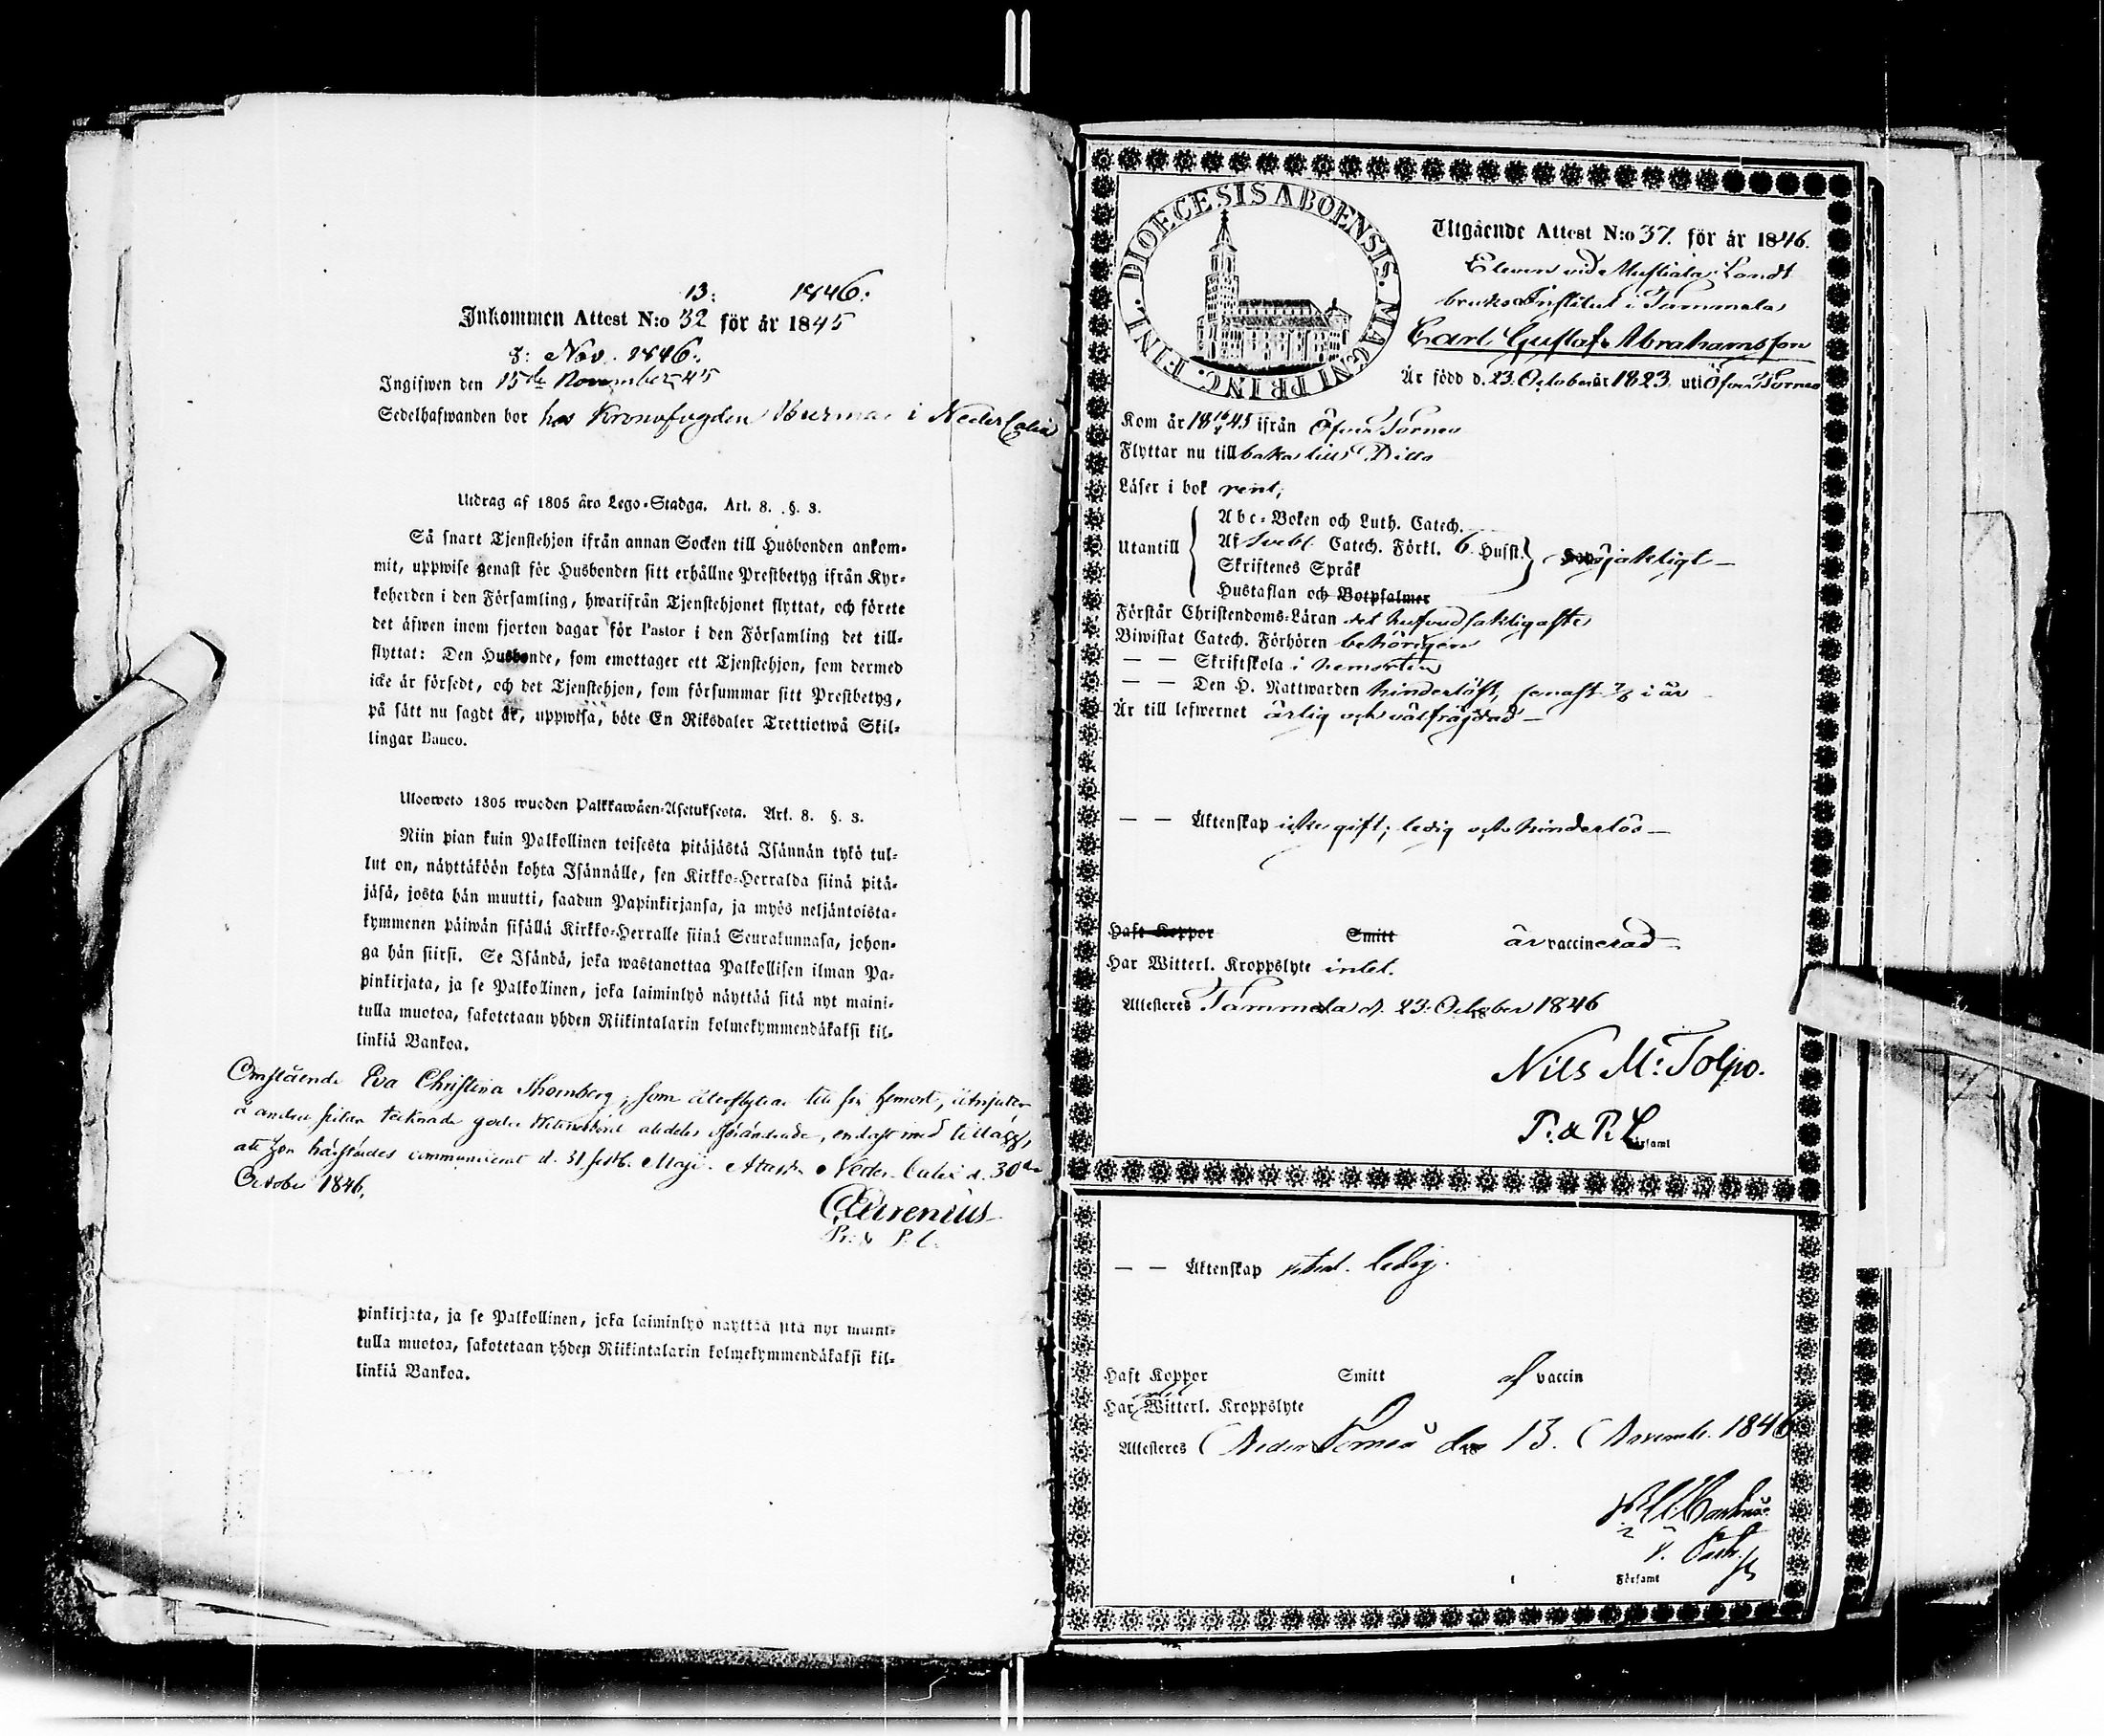 13: 1846:
Inkommen Attest N:o 32 för år 1845
8: Nov. 1846:
Ingifwen den 15de November 45
Sedelhafwanden bor hos Kronofogden Burman i Neder Calix
Utdrag af 1805 års Lego-Stadga. Art. 8. §. 3.
Så snart Tjenstehjon ifrån annan Socken till Husbonden ankom-
mit, uppwise genast för Husbonden sitt erhållne Prestbetyg ifrån Kyr-
koherden i den Församling, hwarifrån Tjenstehjonet flyttat, och förete
det äfwen inom fjorton dagar för Pastor i den Församling det till-
flyttat: Den Husbonde, som emottager ett Tjenstehjon, som dermed
icke är försedt, och det Tjenstehjon, som försummar sitt Prestbetyg,
på sätt nu sagdt är, uppwisa, böte En Riksdaler Trettiotwå Skil-
lingar Banco.
Ulosweto 1805 wuoden Palkkawäen-Asetuksesta. Art. 8. §. 3.
Niin pian kuin Palkollinen toisesta pitäjästä Isännän tykö tul-
lut on, näyttäköön kohta Isännälle, sen Kirkko-Herralda siinä pitä-
jäsä, josta hän muutti, saadun Papinkirjansa, ja myös neljäntoista-
kymmenen päiwän sisällä Kirkko-Herralle siinä Seurakunnasa, johon-
ga hän siirsi. Se Isändä, joka wastanottaa Palkollisen ilman Pa-
pinkirjata, ja se Palkollinen, joka laiminlyö näyttää sitä nyt maini-
tulla muotoa, sakotetaan yhden Riikintalarin kolmekymmendäkaksi kil-
linkiä Bankoa.
Omstående Eva Christina Thornberg, som återflyttar till sin hemort, åtnjuter
å andra sidan tecknade goda alldeles oförändrade, endast med tillägg,
att hon härstädes communicerat d. 31 sistl. Maji. Attest. Neder Calix d. 30de
October 1846,
Pr: & P. L.
pinkirjata, ja se Palkollinen, joka laiminlyö näyttää sitä nyt maini-
tulla muotoa, sakotetaan yhden Riikintalarin kolmekymmendäkaksi kil-
linkiä Bankoa.
DIOECESIS ABOENSIS. MAGNI PRINC. FINL.
Utgående Attest N:o 37. för år 1846.
Eleven vid Mustiala Landt
bruks Institut i Tammela
Carl Gustaf Abrahamsson
Är född d. 23. October år 1823. uti Öfver Torneo
Kom år 18 45 ifrån Öfver Torneo
Flyttar nu till baka till Ditto
Läser i bok rent;
Utantill
Abc-Boken och Luth. Catech.
Af Svebl. Catech. Förkl. 6 Hufst.
Skriftenes Språk
Hustaflan och Botpsalmer
försakligt
Förstår Christendoms-Läran det hufvudsakligaste
Biwistat Catech. Förhören behörigen
— — Skriftskola i hemorten
— — Den H. Nattwarden hinderlöst, senast i år
Är till lefwernet ärlig och välfrägdad —
— — Äktenskap icke gift; ledig och hinderlös —
Haft Koppor Smitt är vaccinerad —
Har Witterl. Kroppslyte intet.
Attesteras Tammela d. 23. October 1846
Nils M: Tolpo.
P: & P: L
Församl
— — Äktenskap ledig.
Haft Koppor Smitt af vaccin
Har Witterl. Kroppslyte
Attesteras Neder Torneå den 13. November 1846
Församl